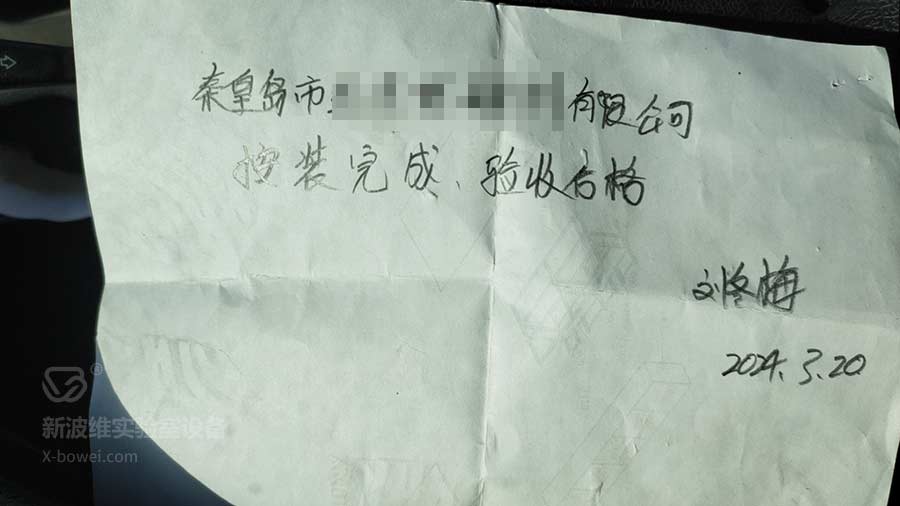 秦皇岛市 有限公司
按装完成、验收合格
刘冬梅
2024.3.20
新波维实验室设备
X-bowei.com